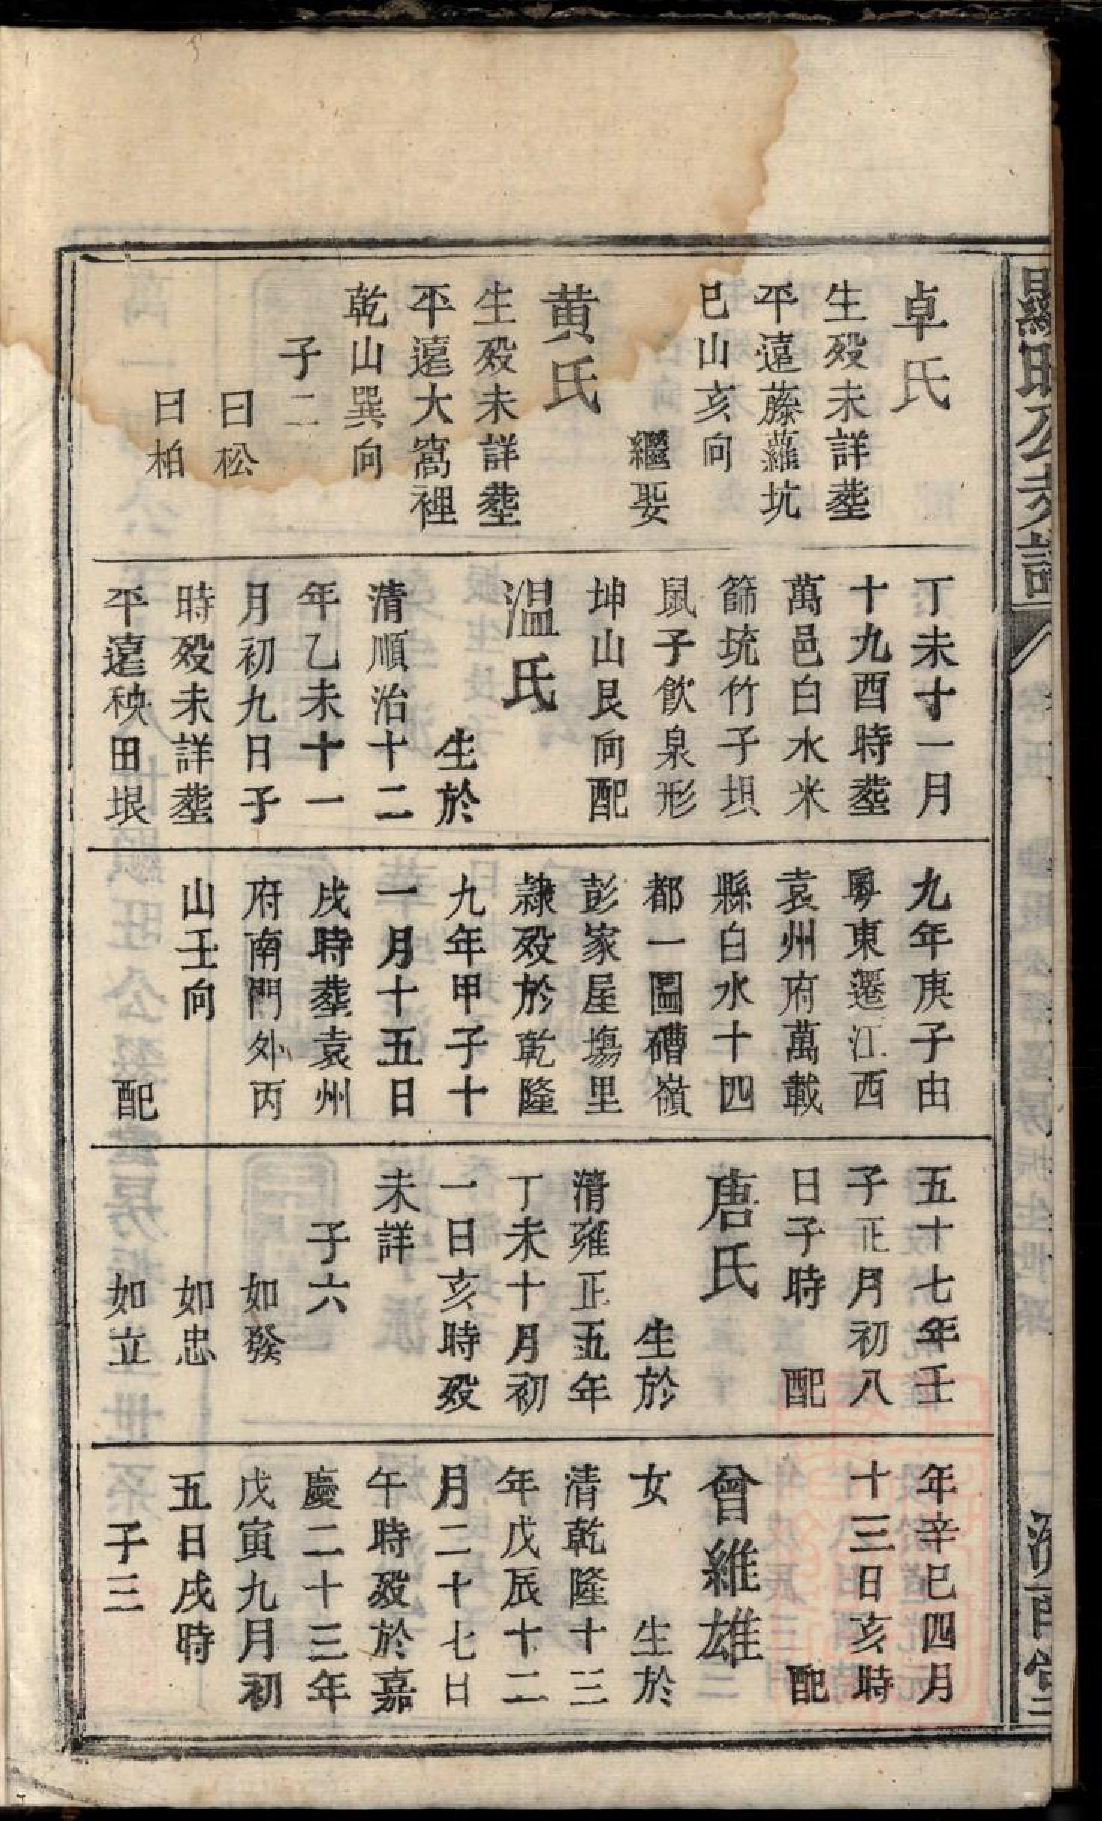 卓氏
生殁未詳塟
平遠藤蘿坑
巳山亥向
繼娶
黄氏
生殁未詳塟
平遠大窩裡
乾山巽向
子二
曰松
曰柏
丁未十一月
十九酉時塟
萬邑白水米
篩垸竹子坦
鼠子飲泉形
坤山艮向配
温氏
生於
清順治十二
年乙未十一
月初九日子
時殁未詳塟
平遠秧田垠
九年庚子由
粵東遷江西
袁州府萬載
縣白水十四
都一圖磄嶺
彭家屋塲里
隷殁於乾隆
九年甲子十
一月十五日
戌時葬袁州
府南門外丙
山壬向
配
五十七年壬
子正月初八
日子時 配
唐氏
生於
清雍正五年
丁未十月初
一日亥時殁
未詳
子六
如發
如忠
如立
年辛巳四月
十三日亥時
配
曾維雄
女 生於
清乾隆十三
年戊辰十二
月二十七日
午時殁於嘉
慶二十三年
戊寅九月初
五日戌時
子三
顯旺公房譜
濟南堂